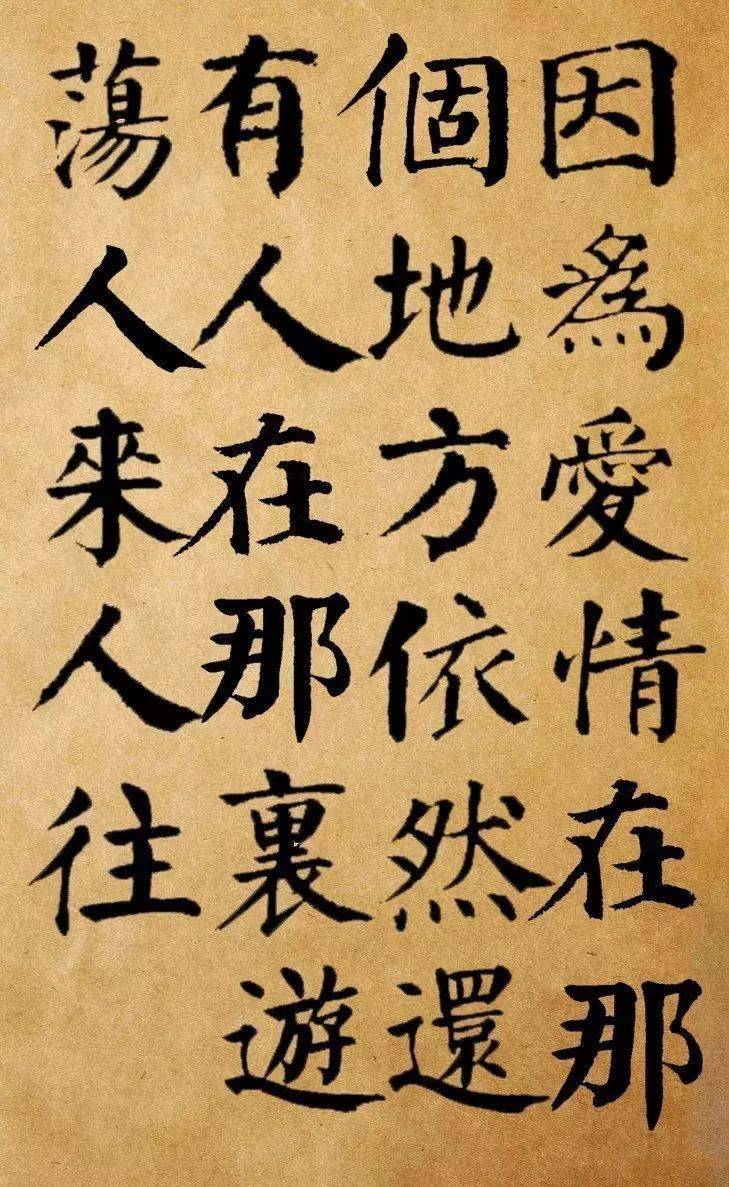 因為愛情在那
個地方依然還
有人在那裏遊
蕩人來人往